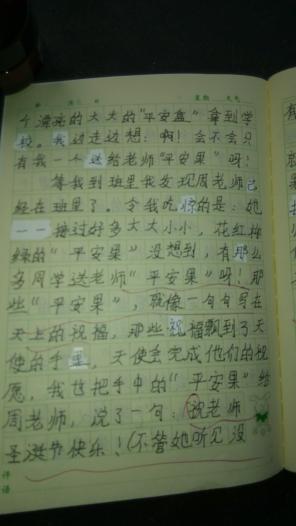 个漂亮的大大的“平安盒”拿到学
校。我边走边想：啊！会不会只
有我一个送给老师“平安果”呀！
等我到班里我发现周老师已
经在班里了。令我吃惊的是：她
一一接过好多大大小小，花红柳
绿的“平安果”没想到，有那么
多同学送老师“平安果”呀！那
些“平安果”，就像一句句写在
天上的祝福，那些祝福飘到了天
使的手里，天使会完成他们的祝
愿，我也把手中的“平安果”给
周老师，说了一句：祝老师
圣诞节快乐！（不管她听见没
评语